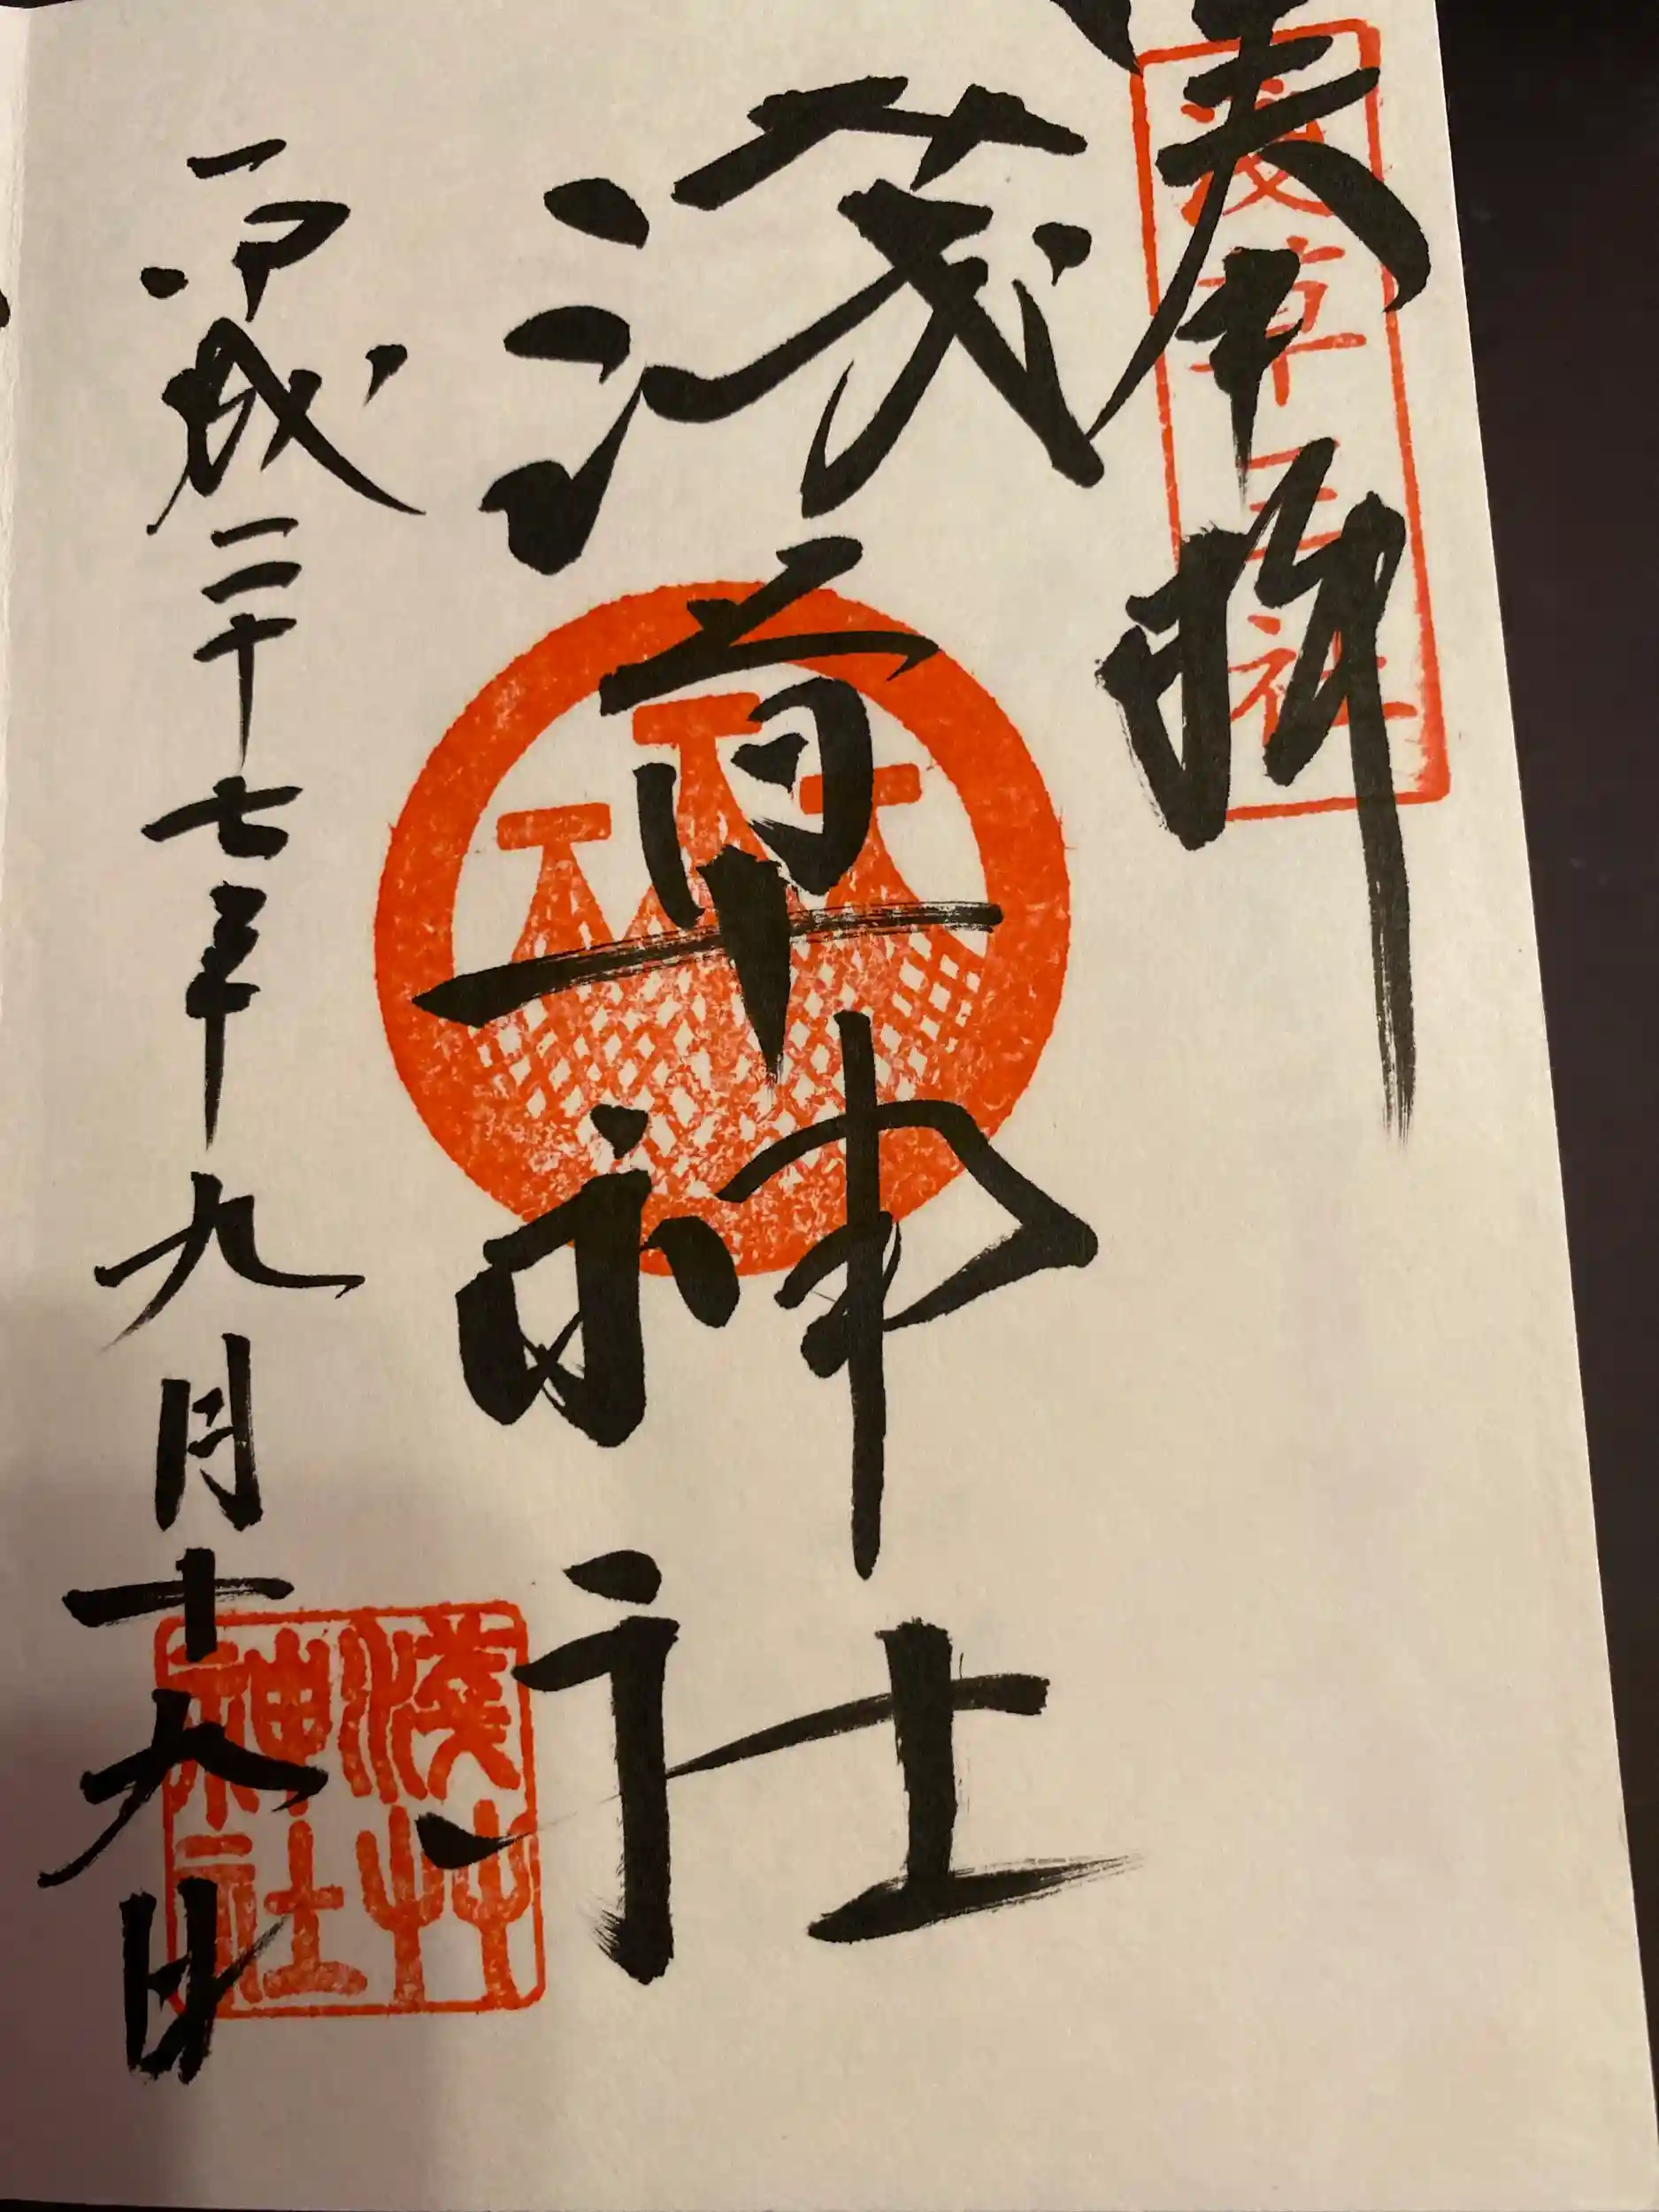 奉拝
浅草三社
浅草神社
平成二十七年九月十九日
浅草
神社